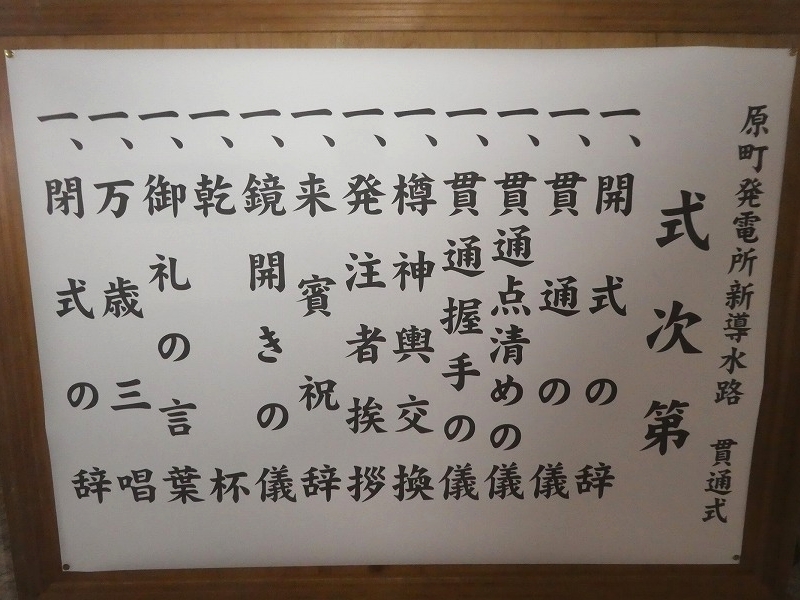 原町発電所新導水路　貫通式
式次第
一、開式の辞
一、貫通の儀
一、貫通点清めの儀
一、貫通握手の儀
一、樽神輿交換
一、発注者挨拶
一、来賓祝辞
一、鏡開きの儀
一、乾杯
一、御礼の言葉
一、万歳三唱
一、閉式の辞